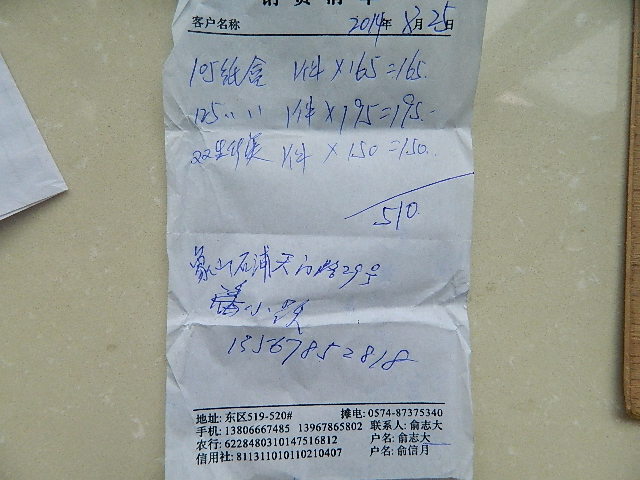 销货清单
客户名称 2014年8月25日
105纸盒 1件×165=165.
125〃〃 1件×195=195.
1件×150=150.
510.
象山石浦天门路29号
小
13567852818
地址: 东区519-520# 摊电: 0574-87375340
手机: 13806667485 13967865802 联系人: 俞志大
农行: 6228480310147516812 户名: 俞志大
信用社: 811311010110210407 户名: 俞信月